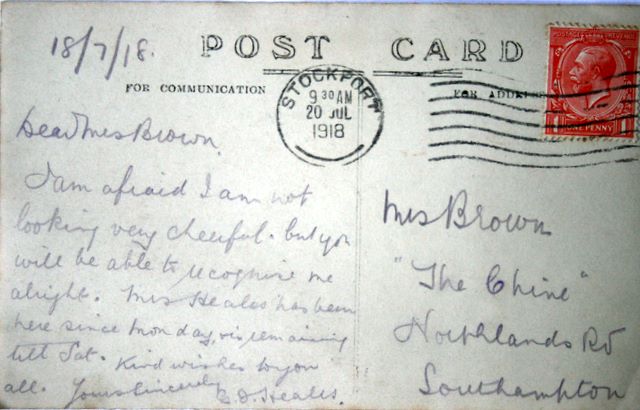 18/7/18.
POST CARD
FOR COMMUNICATION
FOR ADDRE
STOCKPORT
9 30 AM
20 JUL
1918
POSTAGE REVENUE
ONE PENNY
Dear Mrs Brown.
I am afraid I am not
looking very cheerful. but you
will be able to recognise me
alright. Mrs Heales has been
here since Monday, & is remaining
till Sat. Kind wishes to you
all. Yours Sincerely
Heales.
Mrs Brown
"The Chine"
Northlands Rd
Southampton